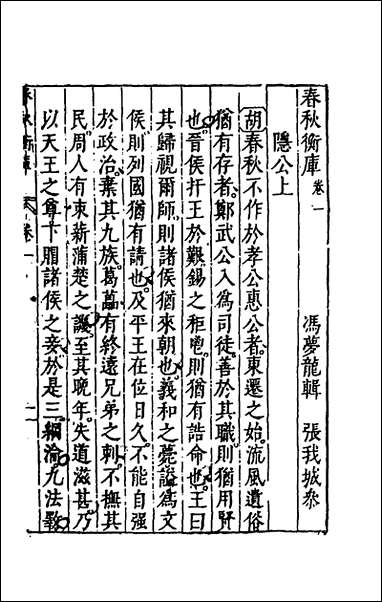 春秋衡庫 卷一 馮夢龍輯 張我城叅
隱公上
胡春秋不作於孝公惠公者東遷之始流風遺俗
猶有存者鄭武公入為司徒善於其職則猶用賢
也晉侯扞王於艱錫之秬鬯則猶有誥命也王曰
其歸視爾師則諸侯猶來朝也義和之薨諡為文
侯則列國猶有請也及平王在位日久不能自强
於政治棄其九族葛藟有終遠兄弟之刺不撫其
民周人有束薪蒲楚之譏至其晚年失道滋甚乃
以天王之尊下賵諸侯之妾於是三綱淪九法斁
春秋衡庫 卷一 一